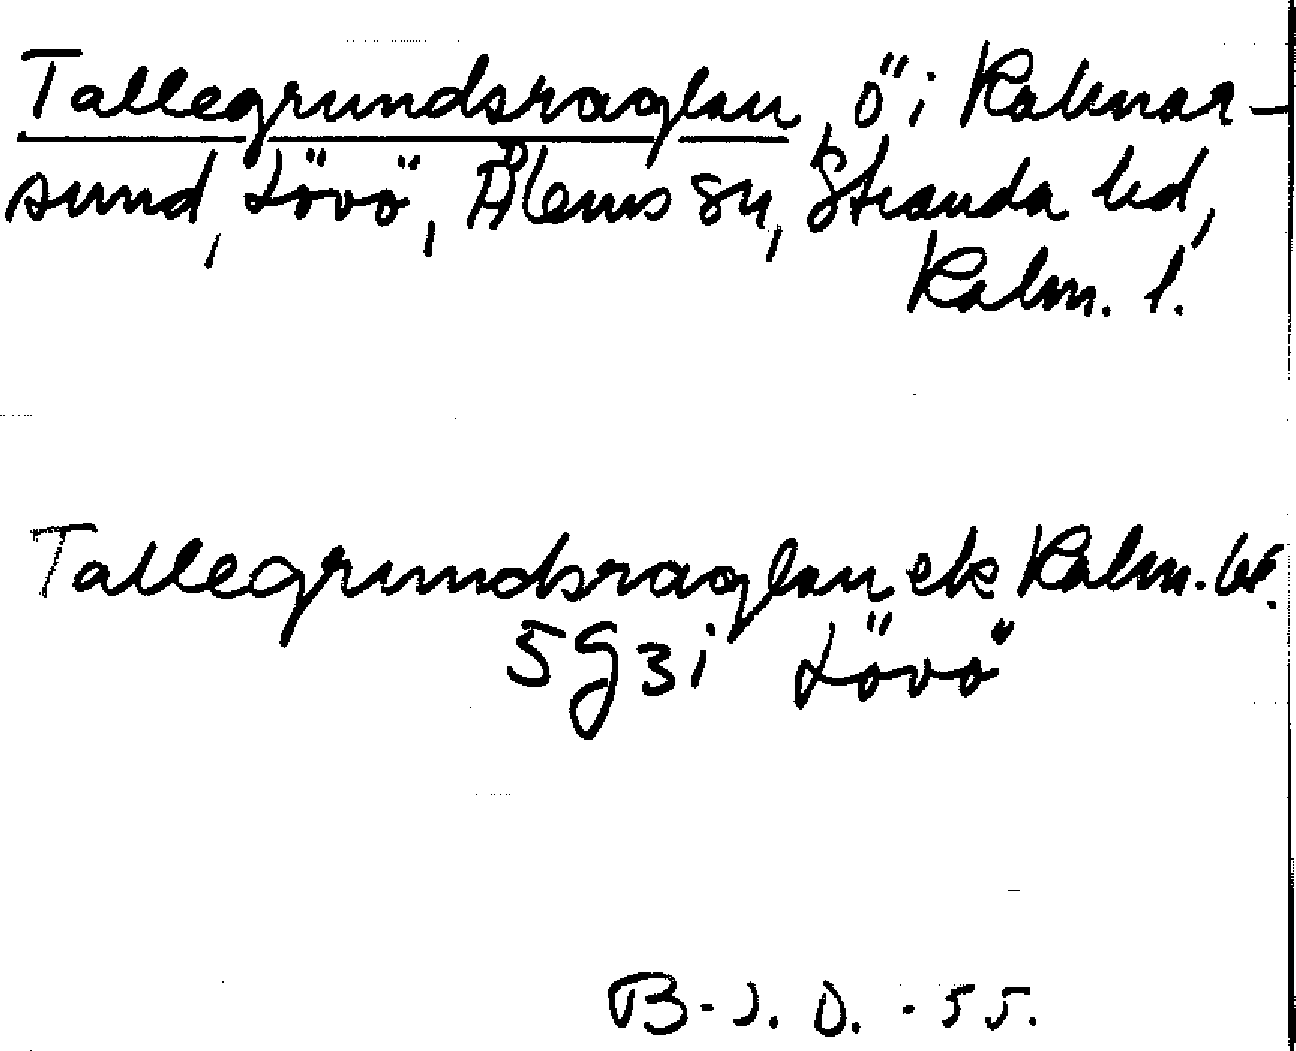 Tallegrundsraglan, ö i Kalmar-
sund, Lövö, Ålems sn, Stranda hd,
Kalm. l.
Tallegrundsraglan ek Kalm.
5 g 3 i Lövö
B-J. O. - 55.